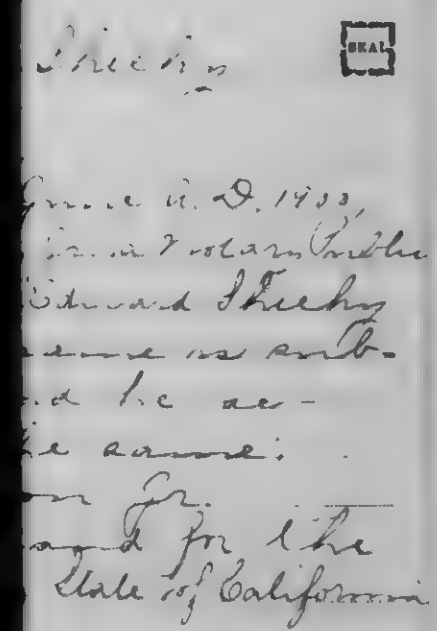 Sheehy
SEAL
June A.D. 1933,
a Notary Public
Edward Sheehy
name is sub-
and he ac-
the same.
Jr.
and for the
State of California